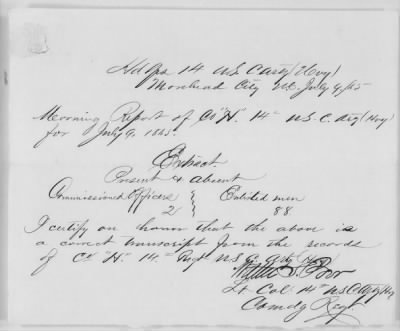 Hd Qrs 14 U.S. C. Arty (Hvy)
Morehead City N.C. July 9/65
Morning Report of Co "H." 14th U.S.C. Arty (Hvy)
for July 9. 1865.
Extract.
Present & absent
Commissioned Officers } Enlisted men
2 } 88
I certify on honor that the above is
a correct transcript from the records
of Co "H." 14th Regt U.S.C. Arty (Hvy)
Walter S. Poor
Lt Col 14th U.S.C. Arty (Hvy)
Comdg Regt.